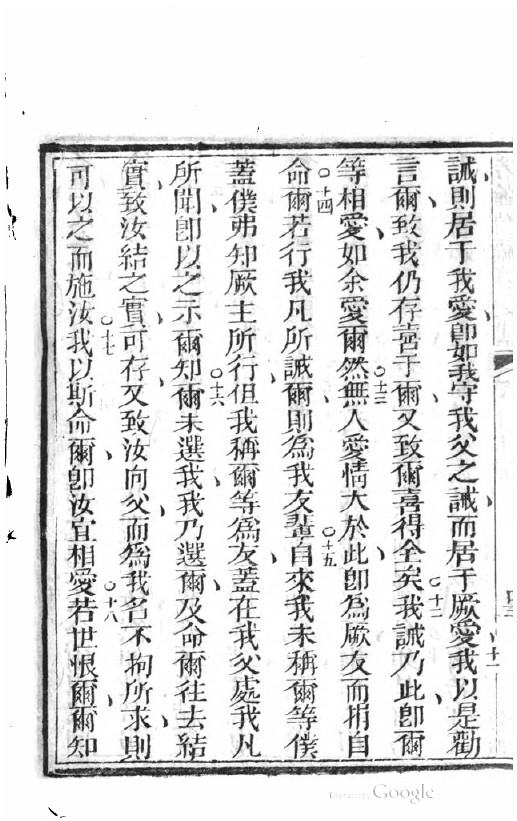 誡則居于我愛、卽如我守我父之誡、而居于厥愛、十一我以是勸
言爾、致我仍存喜于爾、又致爾喜得全矣。十二我誡乃此、卽爾
等相愛、如余愛爾然。十三無人愛情大於此、卽爲厥友而捐自
命。十四爾若行我凡所誡爾、則爲我友輩。十五自來我未稱爾等僕、
蓋僕弗知厥主所行、但我稱爾等爲友、蓋在我父處我凡
所聞、卽以之示爾知。十六爾未選我、我乃選爾、及命爾往去結
實、致汝結之實可存、又致汝向父而爲我名、不拘所求、則
可以之而施汝。十七我以斯命爾、卽汝宜相愛。十八若世恨爾、爾知
四三
Digitized by Google